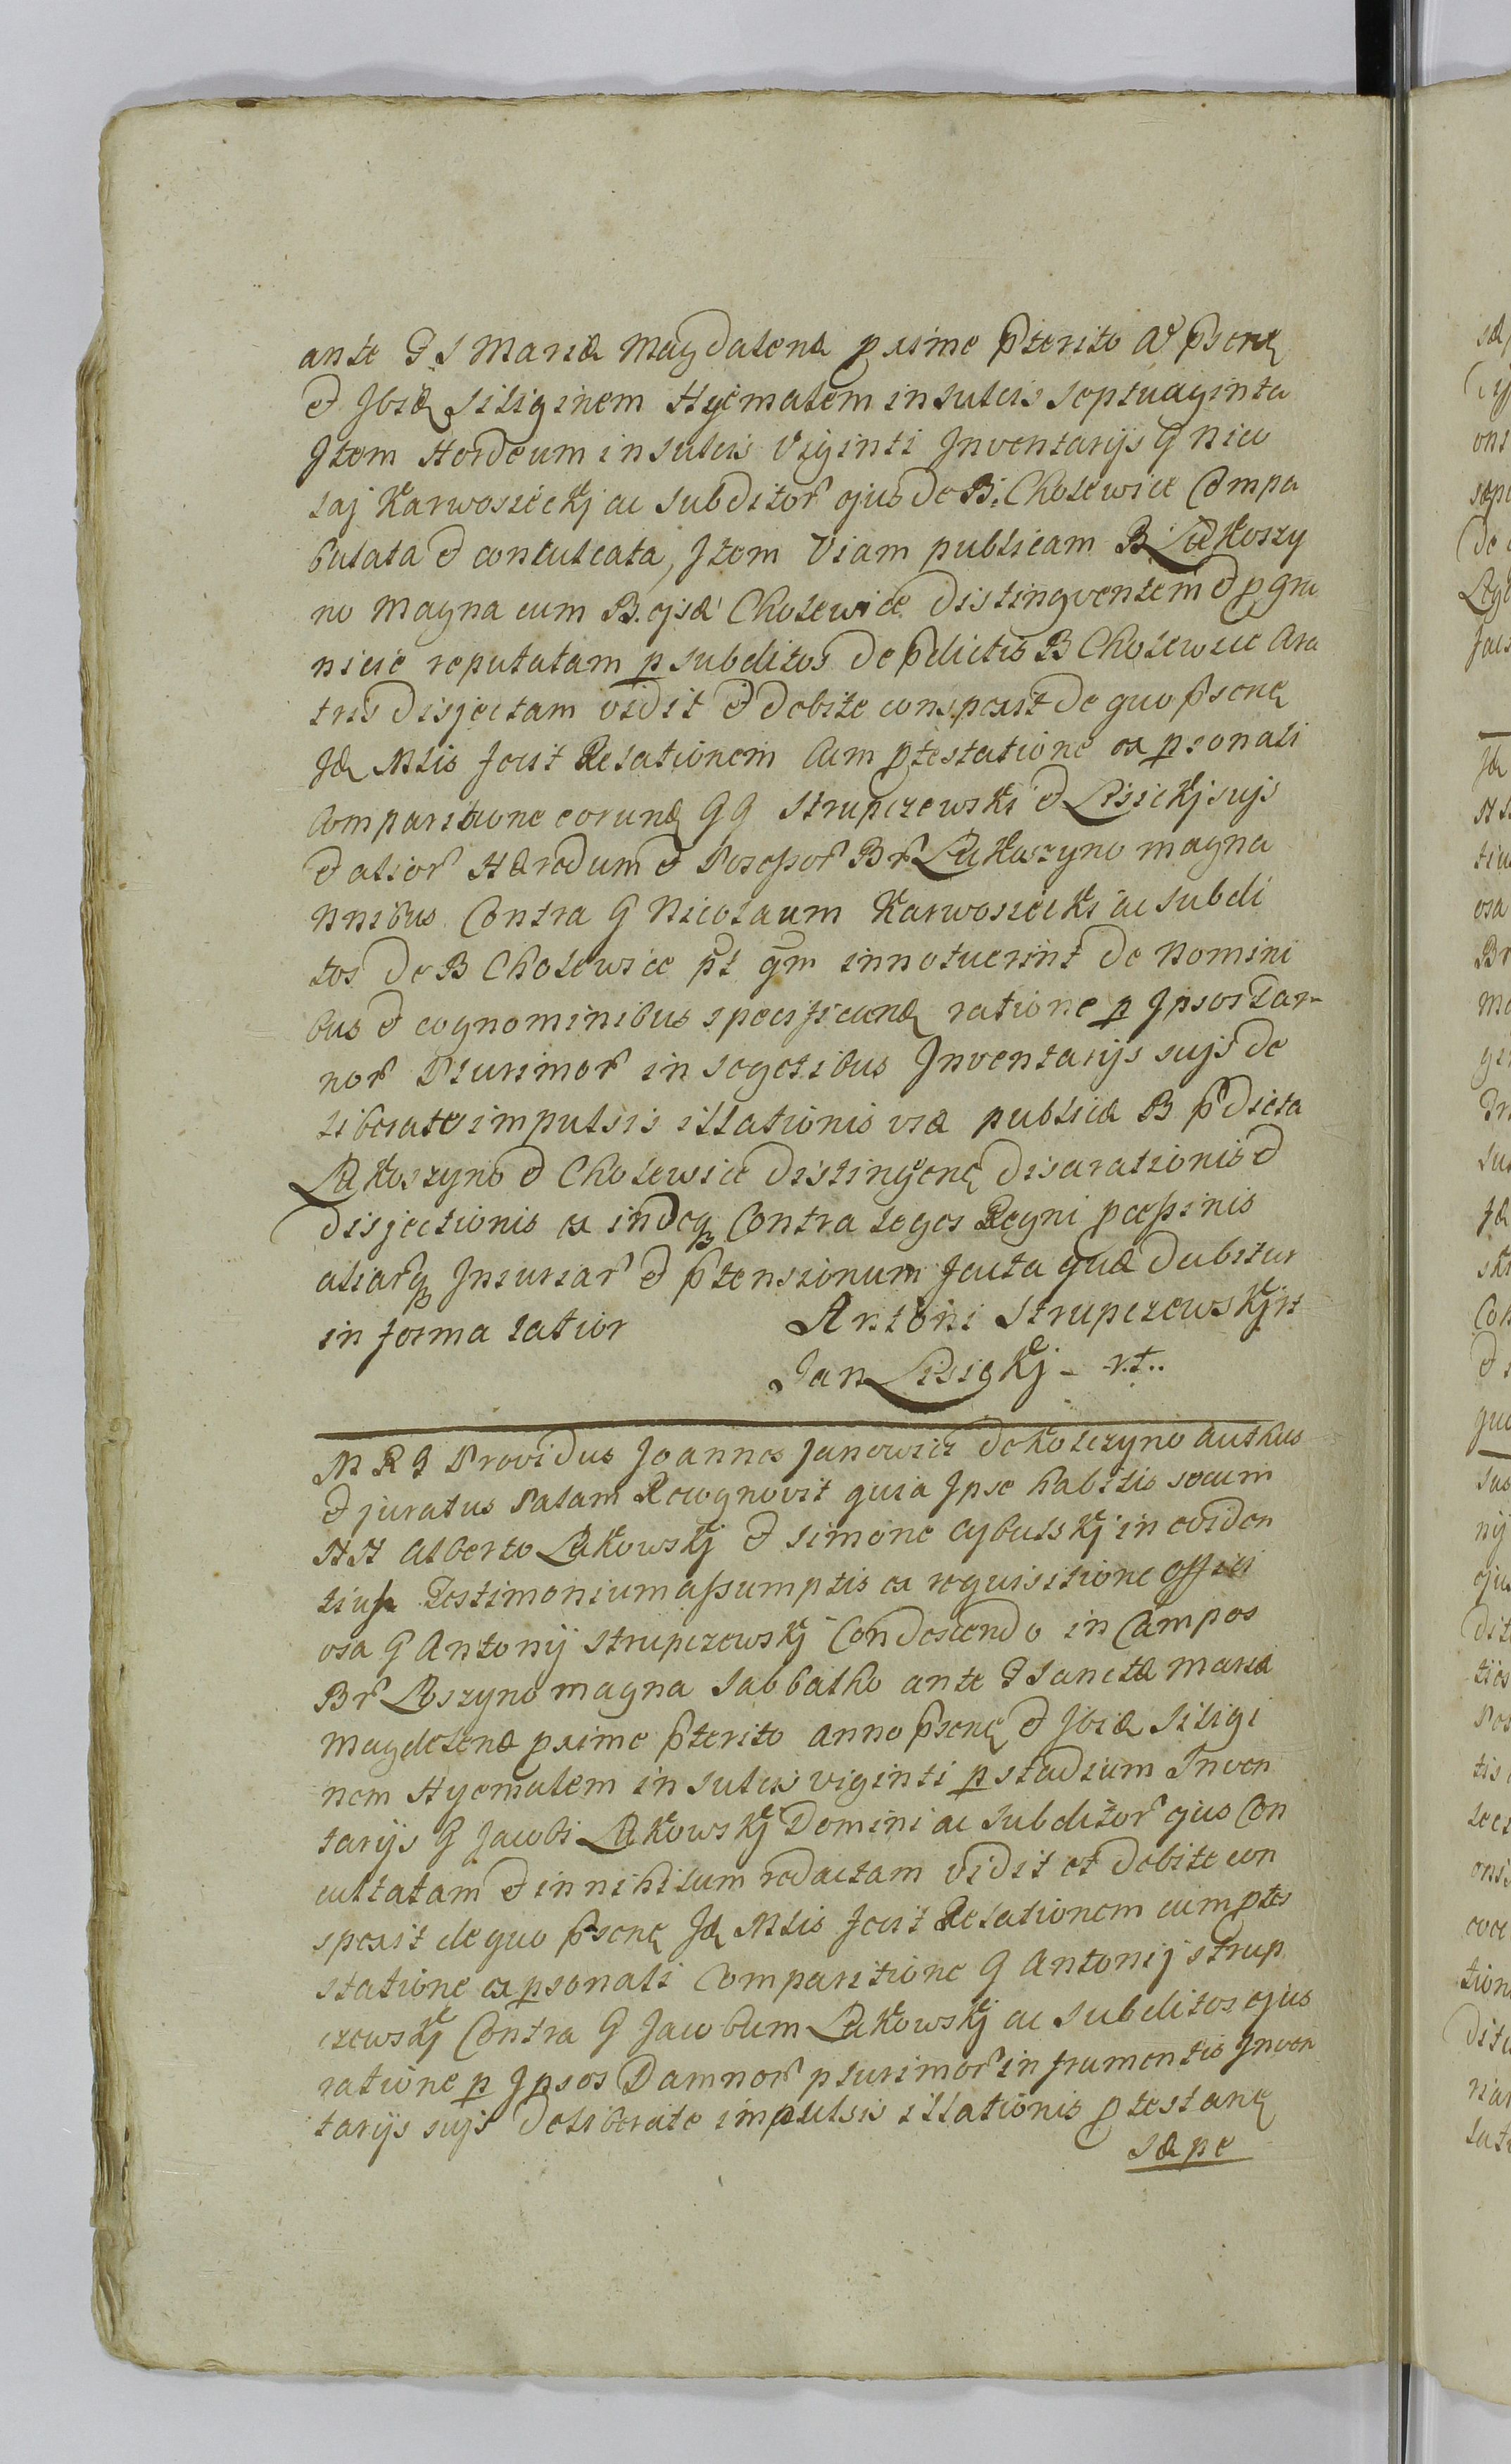 ante F. S Mariæ Magdalenæ pxime pterito Ao psenę
et Ibidę Siliginem Hyemalem in Sulcis Septuaginta
Item Hordeum in Sulcis Viginti Inventarijs G Nico
laj Karwosieckj ac Subditor ejus de B. Cholewice Compa
bulata et conculcata, Item Viam publicam B Łukoszy
no Magna cum B. ejsd Cholewice distingventem et p gra
nicie reputatam p subditos de pdictis B Cholewice Ara
tris disjectam vidit et debite conspexit de quo psenę
Idę Mlis fecit Relationem Cum ptestatione ex psonali
Comparitione eorundę GG Strupczewski et Lisickj sujs
et alior Hæredum et Posessor Br Łukoszyno magna
Nnibus Contra G Nicolaum Karwosiecki ac Subdi
tos de B Cholewice pt qm innotuerint de Nomini
bus et cognominibus specificandę ratione p Ipsos Dam
nor Plurimor in segetibus Inventarijs sujs de
liberate impulsis illationis viæ publicæ B pdicta
Łukoszyno et Cholewice distingvenę disarationis et
disjectionis ex indeq Contra leges Regni pcessinis
aliarq Injuriar et ptensionum facta quæ dabitur
in forma latior Antoni Strupczewskj
Jan Lisickj - r.t..
M R G Providus Joannes Janowicz de Kolczyno Authus
et juratus Palam Recognovit quia Ipse habitis secum
HH Alberto Łukowskj et Simone Cybulskj in eviden
tius Testimonium assumptis ex requisitione Offici
osa G Antonij Strupczewskj Condescendo in Campos
Br Łoszyno magna Sabbatho ante F Sanctæ Mariæ
Magdelenæ pxime pterito anno psenę et Ibidę Siligi
nem Hyemalem in Sulcis viginti p stadium Inven
tarijs G Jacobi Łukowskj Domini ac Subditor ejus Con
cultatam et in nihilum redactam vidit et debite con
spexit de quo psenę Idę Mlis fecit Relationem cum ptes
statione ex psonali Comparitione G Antonij Strup
czewskj Contra G Jacobum Łukowskj ac Subditos ejus
ratione p Ipsos Damnor plurimor in frumentis Inven
tarijs sujs deliberate impulsis illationis ptestanę
sæpe